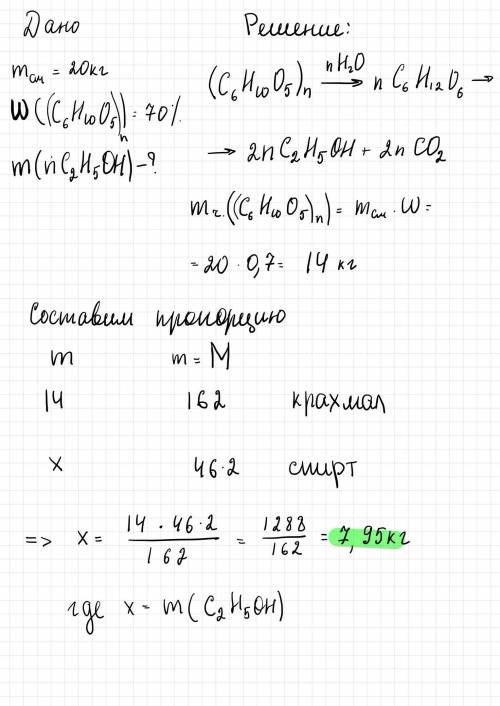 Дано
Решение:
mсм = 20кг
W((C6H10O5)n) = 70%.
m(nC2H5OH) - ?
(C6H10O5)n nH2O → n C6H12O6 →
→ 2n C2H5OH + 2n CO2
mч.((C6H10O5)n) = mсм · W =
= 20 · 0,7 = 14 кг
Составим пропорцию
m m = M
14 162 крахмал
x 46·2 спирт
=> x = 14 · 46 · 2 / 162 = 1288 / 162 = 7,95кг
где x = m(C2H5OH)